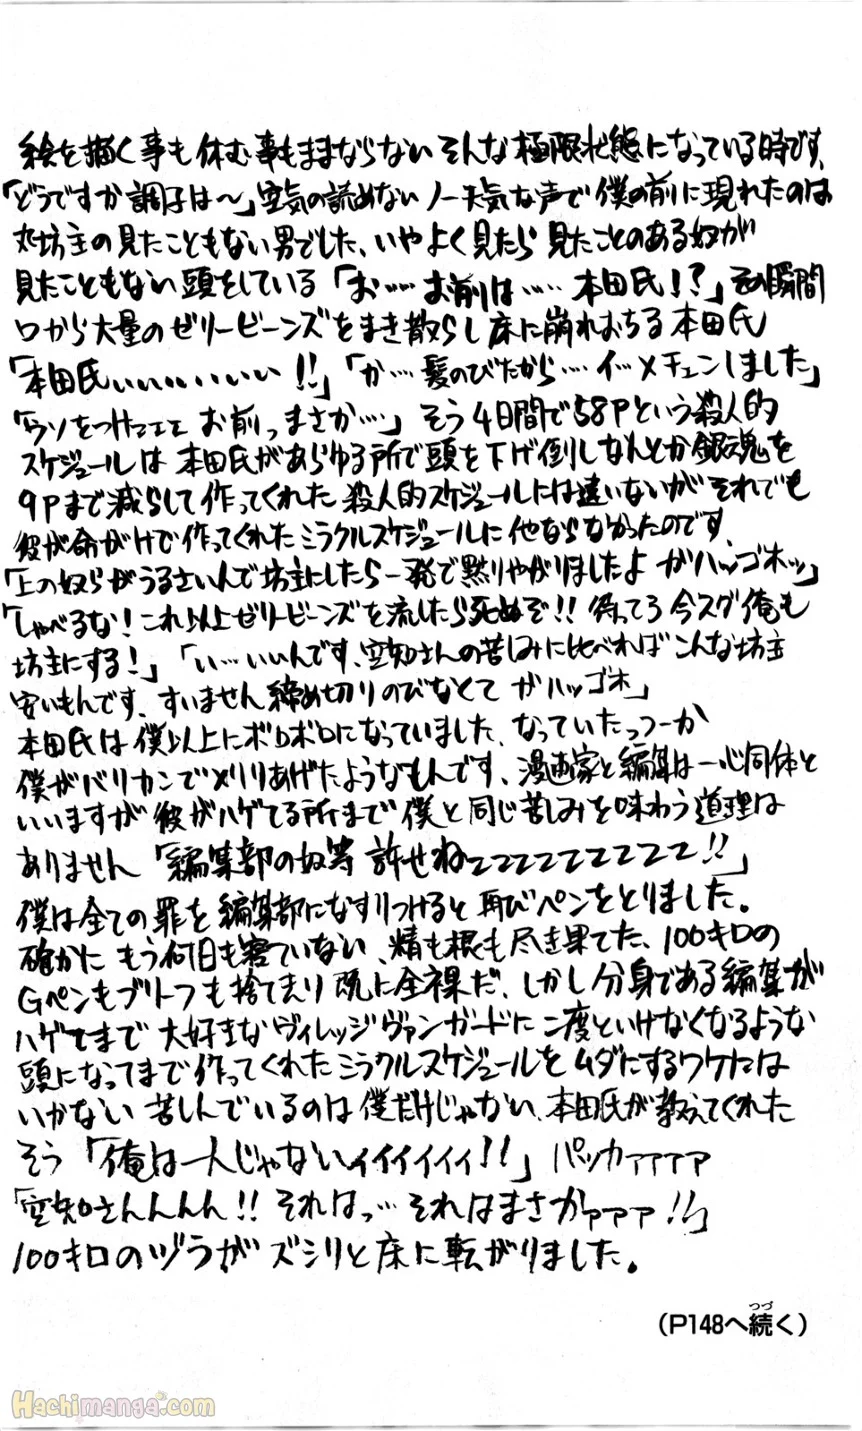 絵を描く事も休む事もままならない そんな極限状態になっている時です、
「どうですか調子は〜」空気の読めないノー天気な声で僕の前に現れたのは
丸坊主の見たこともない男でした、いやよく見たら見たことのある奴が
見たこともない頭をしている「お…… お前は…… 本田氏!?」その瞬間
口から大量のゼリービーンズをまき散らし床に崩れおちる本田氏
「本田氏ぃぃぃぃぃぃ!!」「か…髪のびたから…イ…メチェンしました」
「ウソをつけェェェ お前っまさか…」そう4日間で58Pという殺人的
スケジュールは本田氏があらゆる所で頭を下げ倒しなんとか銀魂を
9Pまで減らして作ってくれた殺人的スケジュールには違いないがそれでも
彼が命がけで作ってくれたミラクルスケジュールに他ならなかったのです、
「上の奴らがうるさいんで坊主にしたら一発で黙りやがりましたよ ガハッゴホッ」
「しゃべるな!これ以上ゼリービーンズを流したら死ぬぞ!!待ってろ今スグ俺も
坊主にする!」「い…いいんです、空知さんの苦しみに比べればこんな坊主
安いもんです、すいません締め切りのびなくて ガハッゴホ」
本田氏は僕以上にボロボロになっていました、なっていたっつーか
僕がバリカンでメリリあげたようなもんです、漫画家と編集は一心同体と
いいますが彼がハゲてる所まで僕と同じ苦しみを味わう道理は
ありません「編集部の奴等 許せねェェェェェェェェェ!!」
僕は全ての罪を編集部になすりつけると再びペンをとりました。
確かにもう何日も寝ていない、精も根も尽き果てた、100キロの
Gペンもブリトフも捨て去り既に全裸だ、しかし分身である編集が
ハゲてまで大好きなヴィレッジヴァンガードに二度といけなくなるような
頭になってまで作ってくれたミラクルスケジュールをムダにするワケには
いかない 苦しんでいるのは僕だけじゃない、本田氏が教えてくれた
そう「俺は一人じゃないィィィィィィ!!」パッカァァァァ
「空知さんんんん!!それはっ…それはまさかァァァ!!」
100キロのヅラがズシリと床に転がりました。
(P148へ続く)
つづ
Hachimanga.com